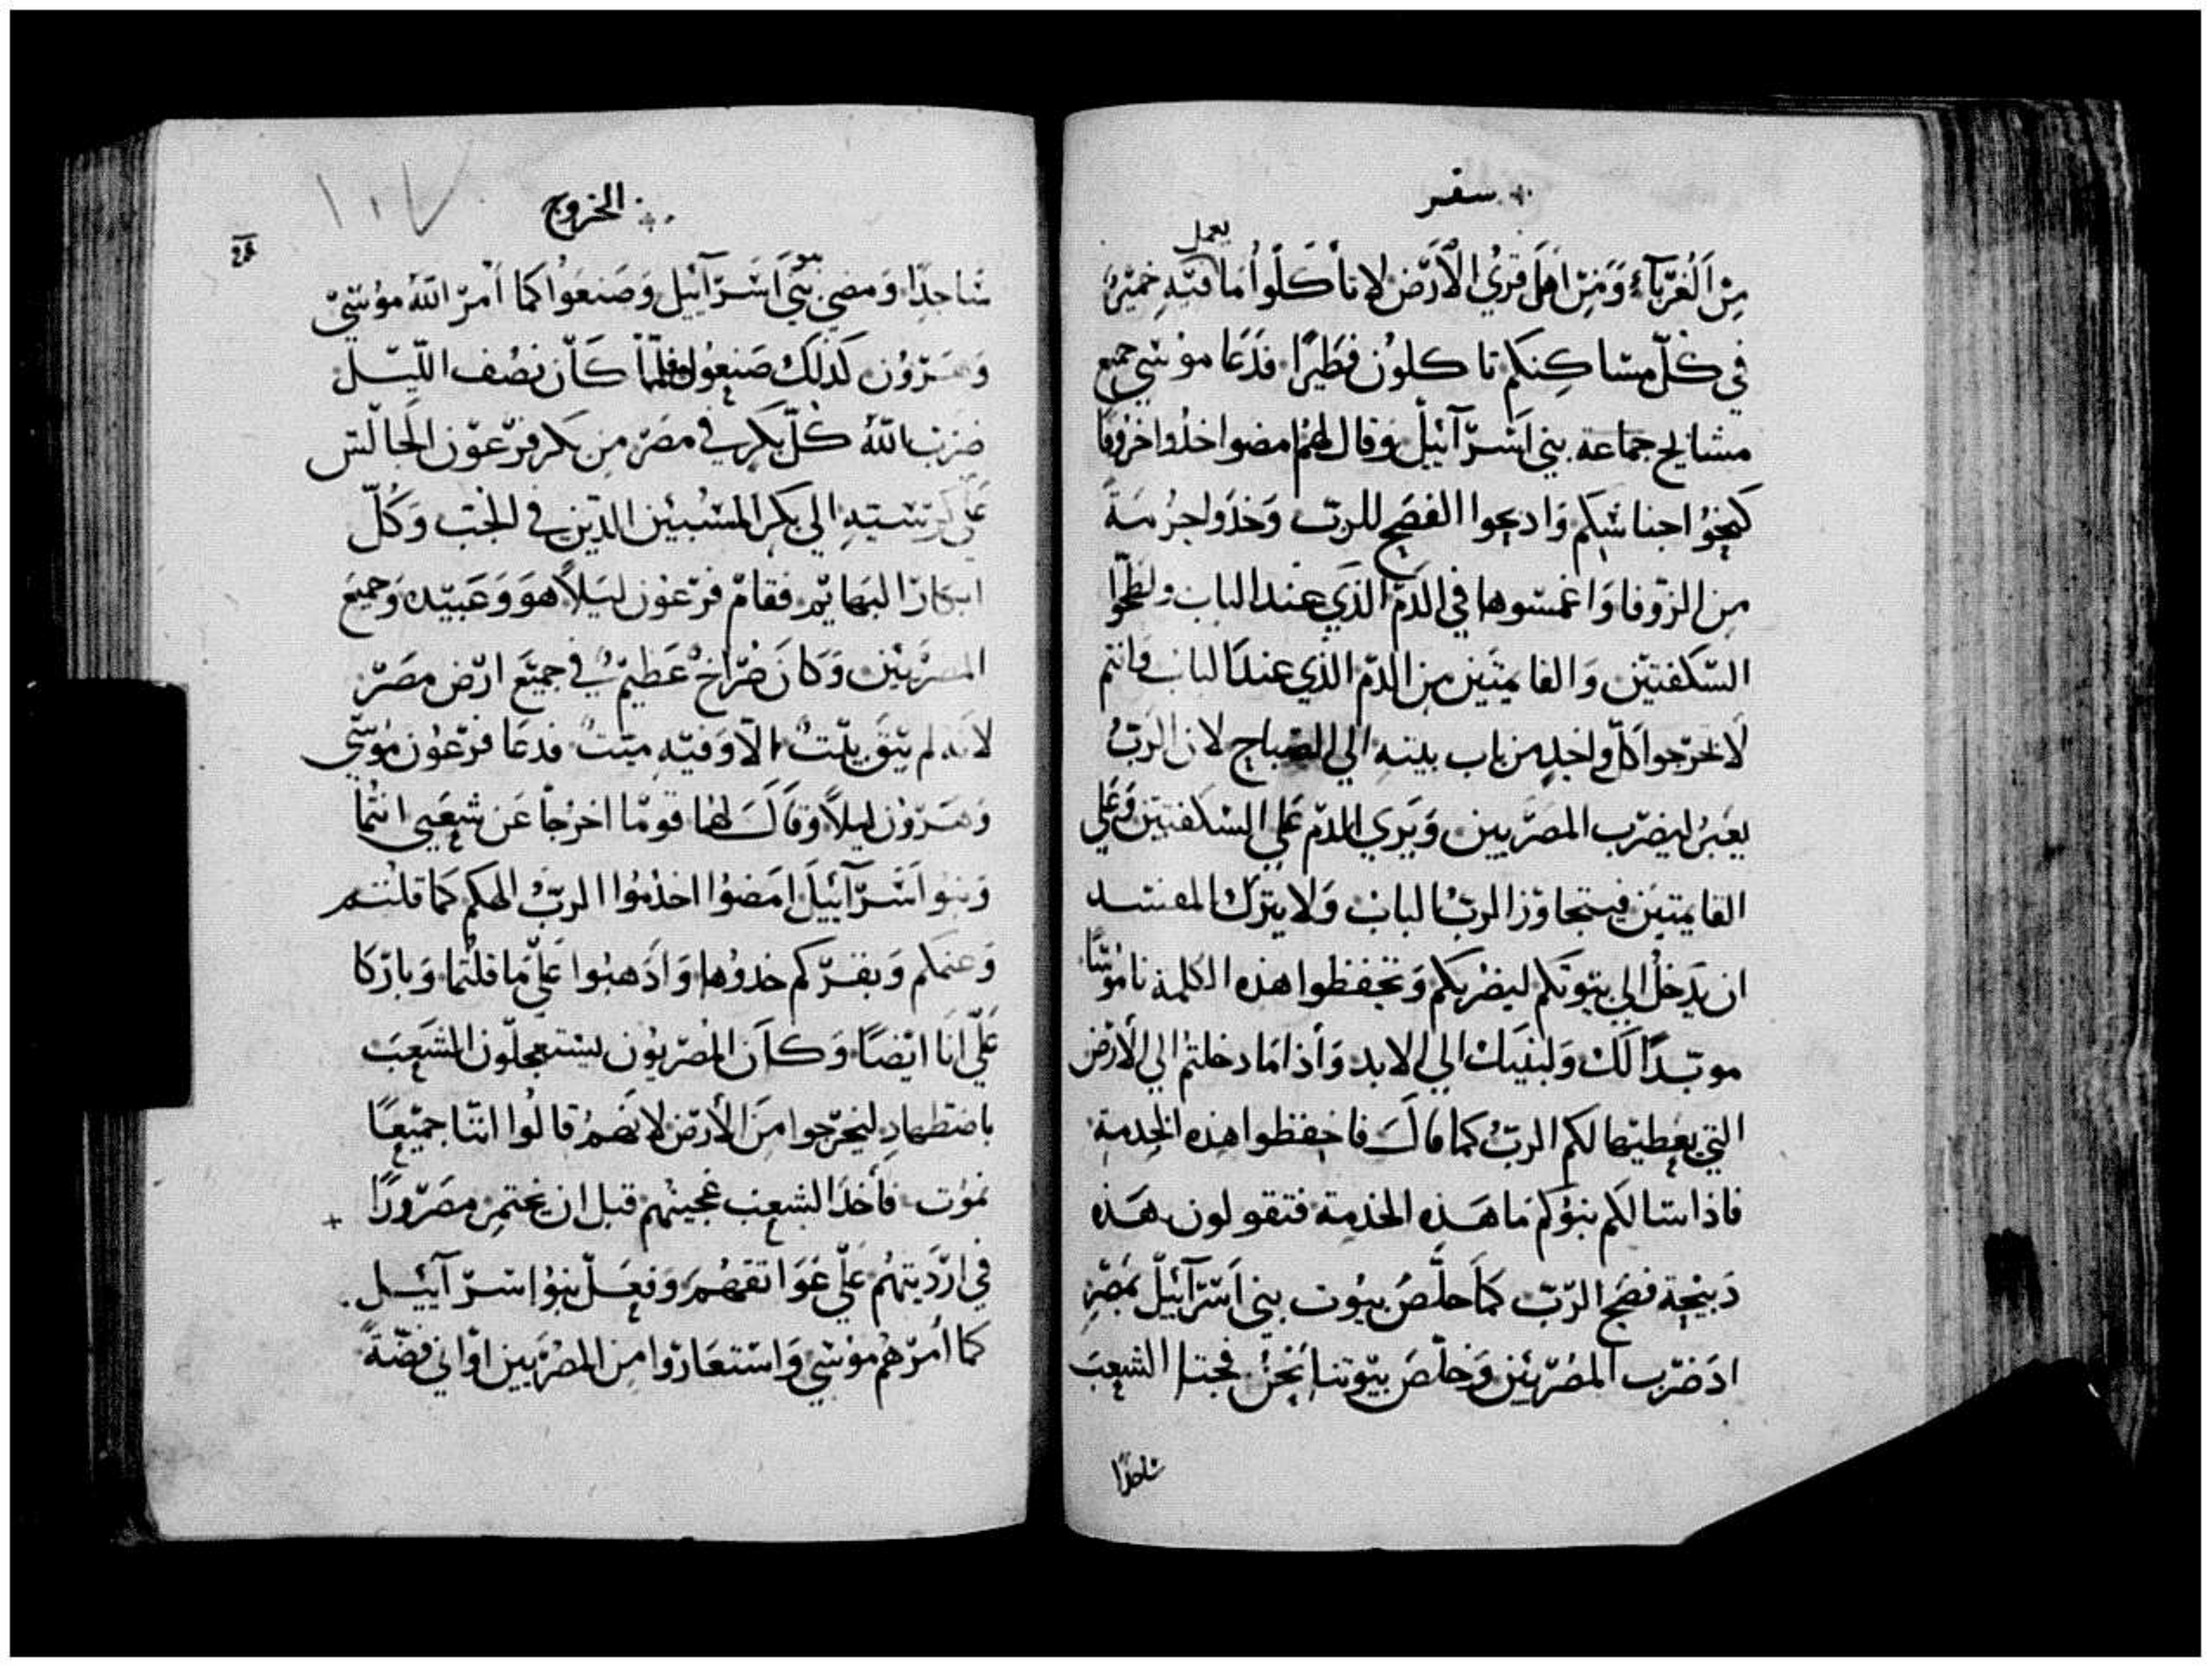 سفر
يعمل
من الغربآء ومن اهل قري الارض لا تأكلوا ما فيه خمير
في كل مساكنكم تاكلون فطيرا فدعا موسي جميع
مشايخ جماعة بني اسرآئيل وقال لهم امضوا خذوا خروفا
كنحو اجناسكم وادبحوا الفصح للرب وخذوا جرمة
من الزوفا واغمسوها في الدم الذي عند الباب ولطخوا
السكفتين والقايمتين من الدم الذي عند الباب وانتم
لا تخرجوا كل واحد من باب بيته الي الصباح لان الرب
يعبر ليضرب المصريين ويري الدم علي السكفتين وعلي
القايمتين فيتجاوز الرب الباب ولا يترك المفسد
ان يدخل الي بيوتكم ليضربكم وتحفظوا هذه الكلمة ناموسا
موبدا لك ولبنيك الي الابد واذا ما دخلتم الي الارض
التي يعطيها لكم الرب كما قال فاحفظوا هذه الخدمة
فاذا سالكم بنوكم ما هذه الخدمة فتقولون هذه
دبيحة فصح الرب كما خلص بيوت بني اسرآئيل بمصر
اد ضرب المصريين وخلص بيوتنا نحن فجتا الشعب
ساجدا
الخروج
١٠٧
ساجدا ومضي بني اسرآئيل وصنعوا كما امر الله موسي
وهرون كذلك صنعوا فلما كان نصف الليل
ضرب الله كل بكر في مصر من بكر فرعون الجالس
علي كرسيه الي بكر المسبيين الذين في الجب وكل
ابكار البهايم فقام فرعون ليلا هو وعبيده وجميع
المصريين وكان صراخ عظيم في جميع ارض مصر
لانه لم يبق بيت الا وفيه ميت فدعا فرعون موسي
وهرون ليلا وقال لهما قوما اخرجا عن شعبي انتما
وبنوا اسرآئيل امضوا اخدموا الرب الهكم كما قلتم
وغنمكم وبقركم خدوها واذهبوا علي ما قلتما وباركا
علي انا ايضا وكان المصريون يستعجلون الشعب
باضطهاد ليخرجوا من الارض لانهم قالوا اننا جميعا
نموت فأخذ الشعب عجينهم قبل ان يختمر مصرورا
في ارديتهم علي عواتقهم وفعل بنوا اسرآئيل
كما امرهم موسي واستعاروا من المصريين اواني فضة